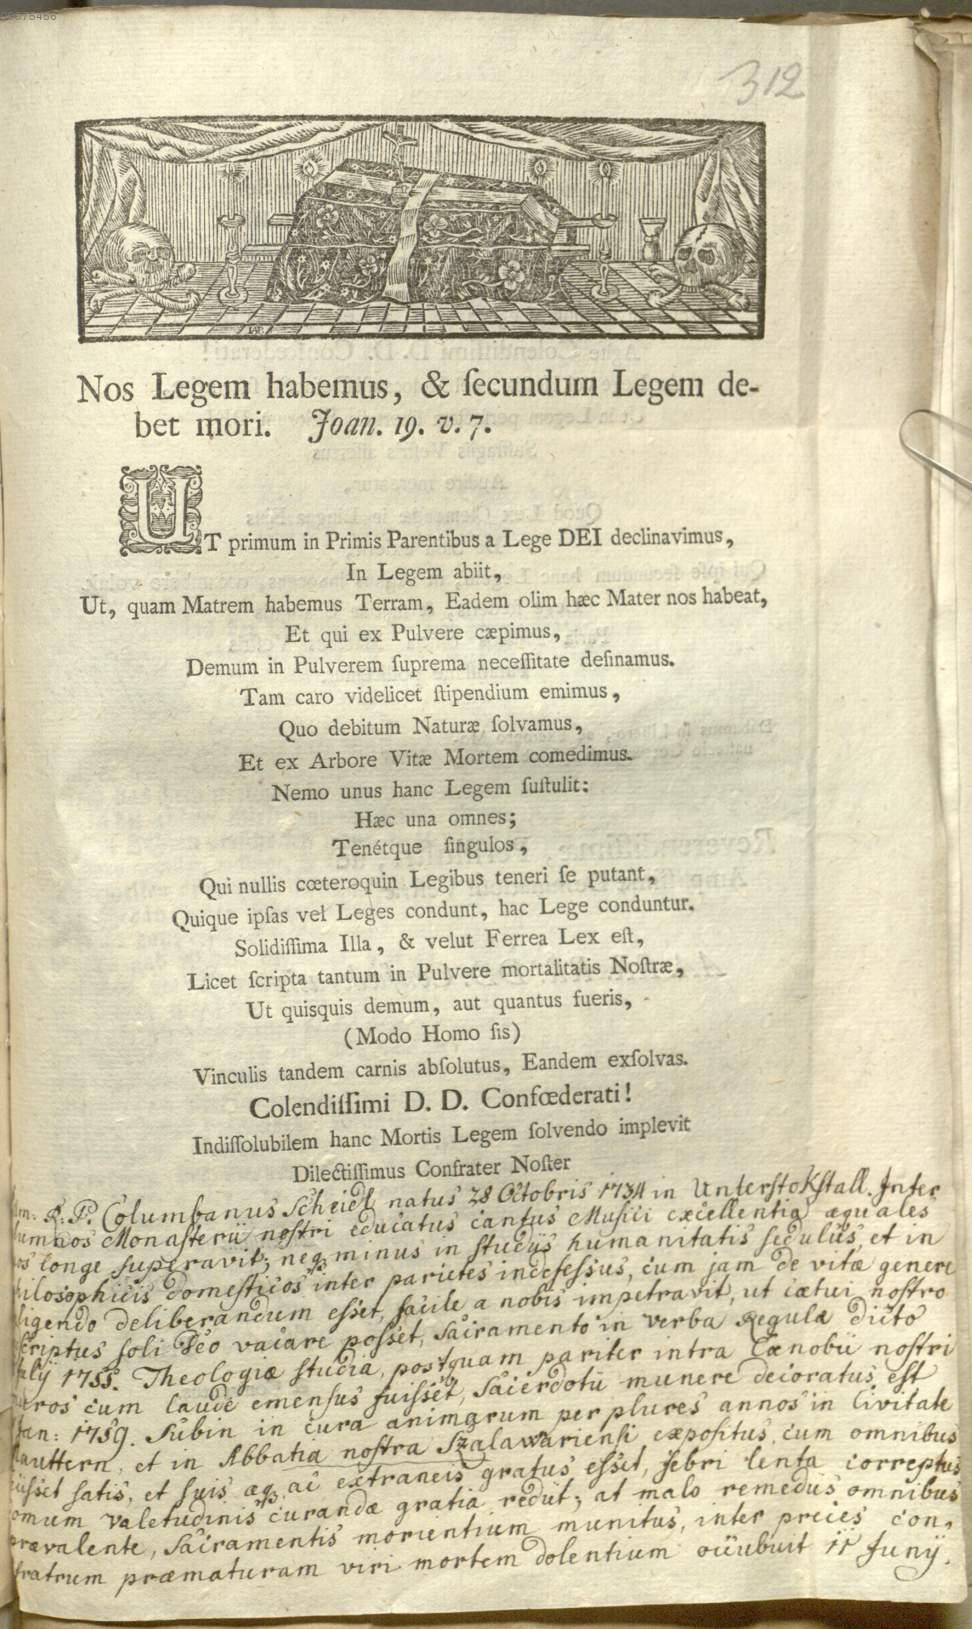 312
Nos Legem habemus, & ſecundum Legem de-
bet mori. Joan. 19. v. 7.
UT primum in Primis Parentibus a Lege DEI declinavimus,
In Legem abiit,
Ut, quam Matrem habemus Terram, Eadem olim hæc Mater nos habeat,
Et qui ex Pulvere cæpimus,
Demum in Pulverem ſuprema neceſſitate deſinamus.
Tam caro videlicet ſtipendium emimus,
Quo debitum Naturæ ſolvamus,
Et ex Arbore Vitæ Mortem comedimus.
Nemo unus hanc Legem ſuſtulit:
Hæc una omnes;
Tenétque ſingulos,
Qui nullis cœteroquin Legibus teneri ſe putant,
Quique ipſas vel Leges condunt, hac Lege conduntur.
Solidiſſima Illa, & velut Ferrea Lex eſt,
Licet ſcripta tantum in Pulvere mortalitatis Noſtræ,
Ut quisquis demum, aut quantus fueris,
(Modo Homo ſis)
Vinculis tandem carnis abſolutus, Eandem exſolvas.
Colendiſſimi D. D. Confœderati!
Indiſſolubilem hanc Mortis Legem ſolvendo implevit
Dilectiſſimus Confrater Noſter
R: P. Columbanus Scheidl natus 28 Octobris 1734 in Unterstokstall. Inter
Monasterii nostri educatus cantus Musici excellentia æquales
longe superavit; neq minus in studijs humanitatis sedulus, et in
domesticos inter parietes indefessus, cum jam de vitæ genere
deliberandum esset, facile a nobis impetravit, ut cætui nostro
soli Deo vacare posset, Sacramento in verba Regulæ dicto
1755. Theologiæ studia, postquam pariter intra Cænobii nostri
cum laude emensus fuisset, Sacerdotii munere decoratus est
1759. Subin in cura animarum per plures annos in Civitate
Mauttern, et in Abbatia nostra Szalawariensi expositus, cum omnibus
satis, et suis æq ac extraneis gratus esset, febri lenta correptus
valetudinis curandæ gratia rediit; at malo remedijs omnibus
prævalente, Sacramentis morientium munitus, inter preces con-
fratrum præmaturam viri mortem dolentium occubuit 11 Junij.